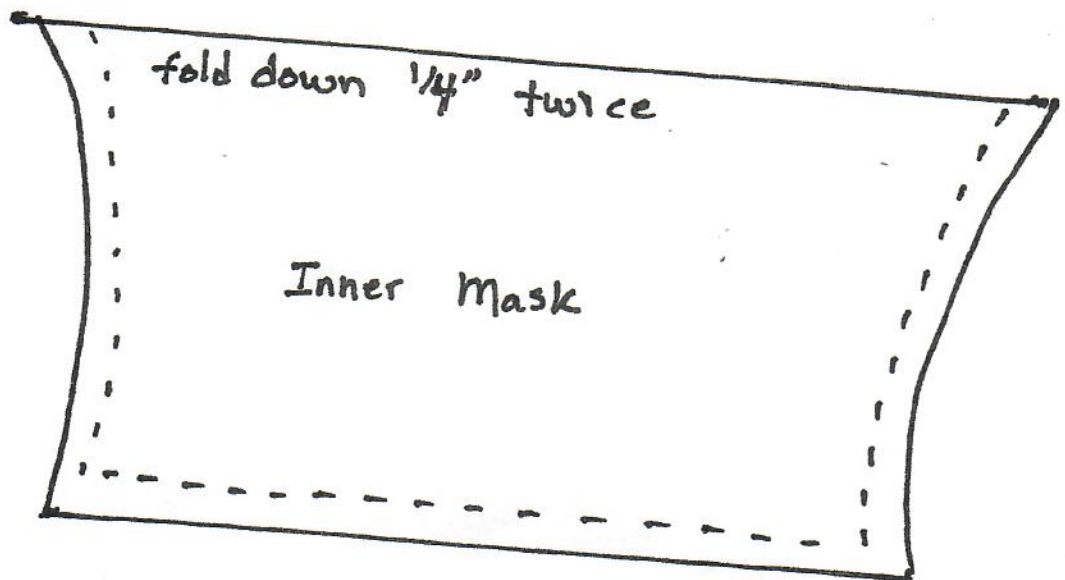 fold down 1/4" twice
Inner Mask